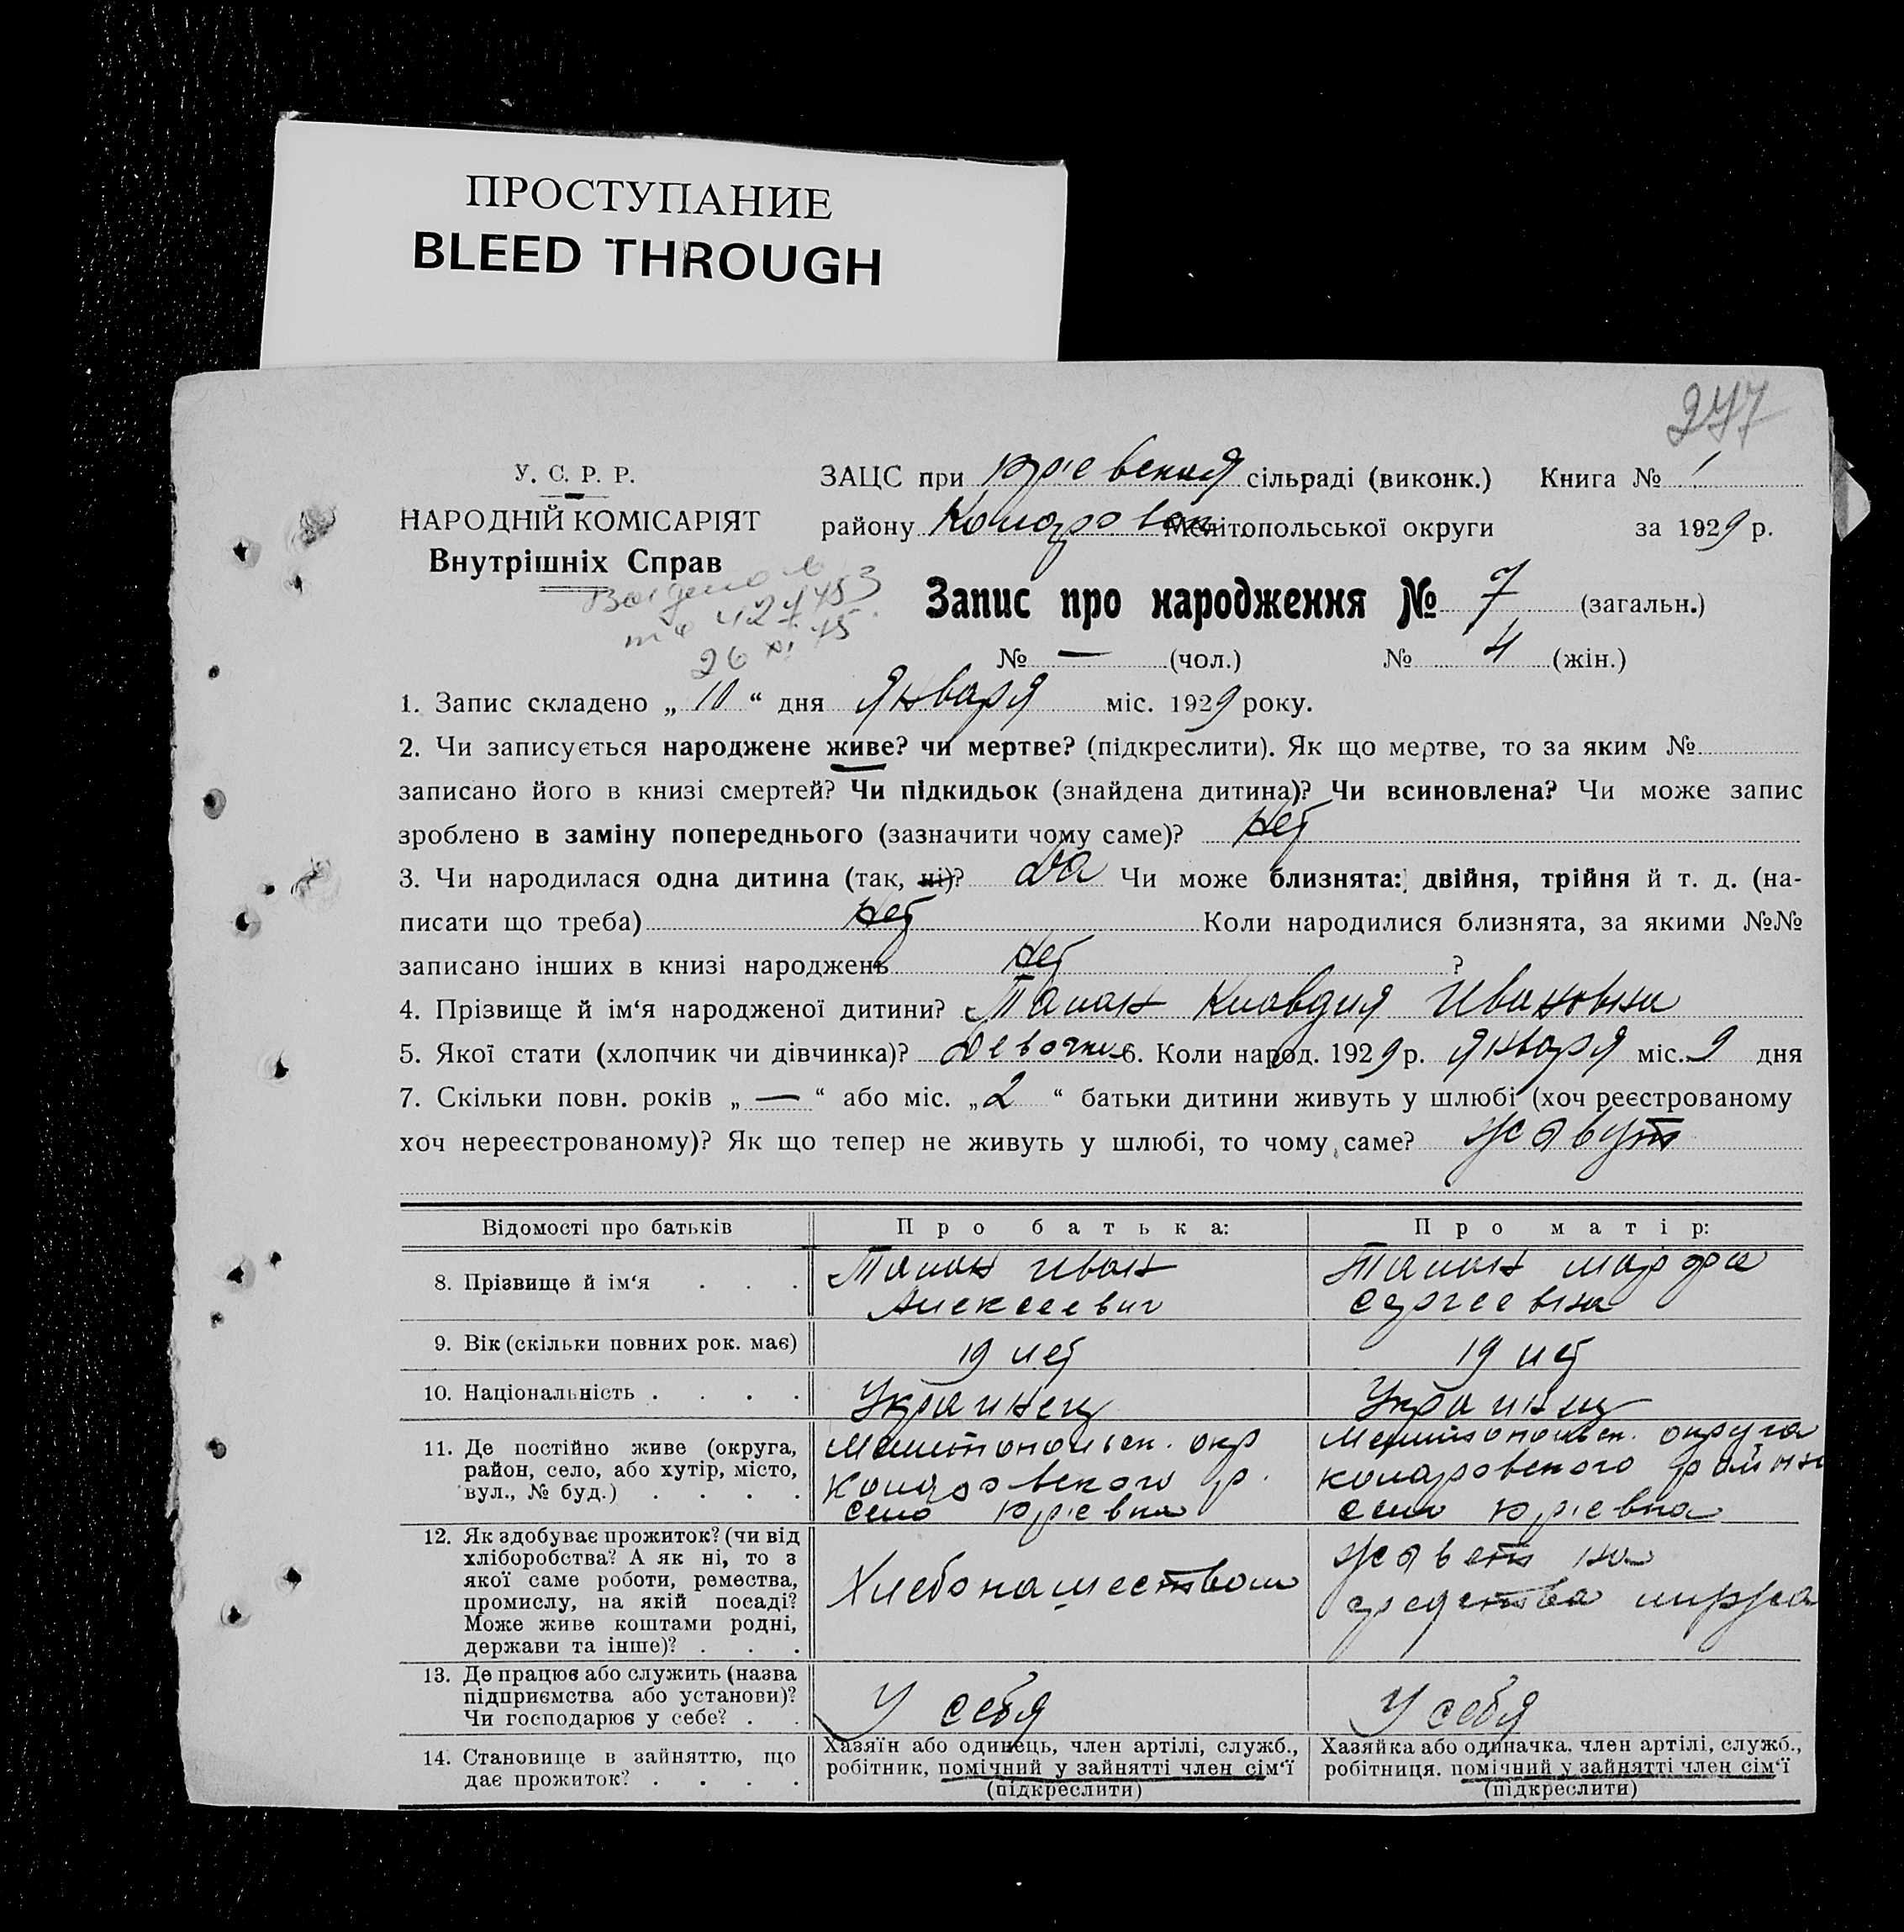 ПРОСТУПАНИЕ
BLEED THROUGH
247
У. С. Р. Р.
НАРОДНІЙ КОМІСАРІЯТ
Внутрішніх Справ
ЗАЦС при сільраді (виконк.) Книга № 1
району Мелітопольської округи за 1929 р.
26 XI 45
Запис про народження № 7 (загальн.)
№ — (чол.) № 4 (жін.)
1. Запис складено „ 10 “ дня Января міс. 1929 року.
2. Чи записується народжене живе? чи мертве? (підкреслити). Як що мертве, то за яким №
записано його в книзі смертей? Чи підкидьок (знайдена дитина)? Чи всиновлена? Чи може запис
зроблено в заміну попереднього (зазначити чому саме)? Нет
3. Чи народилася одна дитина (так, ні)? Да Чи може близнята: двійня, трійня й т. д. (на-
писати що треба) Нет Коли народилися близнята, за якими №№
записано інших в книзі народжень Нет ?
4. Прізвище й ім‘я народженої дитини? Клавдия Ивановна
5. Якої стати (хлопчик чи дівчинка)? Девочка 6. Коли народ. 1929 р. Января міс. 9 дня
7. Скільки повн. років „ — “ або міс. „ 2 “ батьки дитини живуть у шлюбі (хоч реєстрованому
хоч нереєстрованому)? Як що тепер не живуть у шлюбі, то чому саме? живут
Відомості про батьків
Про батька:
Про матір:
8. Прізвище й ім‘я . . .
Иван
Алексеевич
Сергеевна
9. Вік (скільки повних рок. має)
19 лет
19 лет
10. Національність . . . .
Украинец
Украинец
11. Де постійно живе (округа,
район, село, або хутір, місто,
вул., № буд.) . . . .
Мелитопольск. окр
р.
село Юр'евка
Мелитопольск. округа
района
село Юр'евка
12. Як здобуває прожиток? (чи від
хліборобства? А як ні, то з
якої саме роботи, ремества,
промислу, на якій посаді?
Може живе коштами родні,
держави та інше)? . . .
Хлебопашеством
живет на
средства мужа
13. Де працює або служить (назва
підприємства або установи)?
Чи господарює у себе? . .
У себя
У себя
14. Становище в зайняттю, що
дає прожиток? . . . .
Хазяїн або одинець, член артілі, служб.,
робітник, помічний у зайнятті член сім‘ї
(підкреслити)
Хазяйка або одиначка, член артілі, служб.,
робітниця. помічний у зайнятті член сім‘ї
(підкреслити)